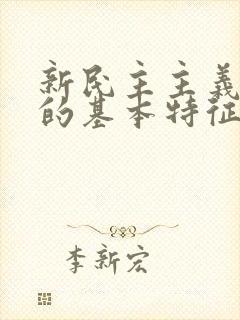 新民主主義
的基本特征
李新宏